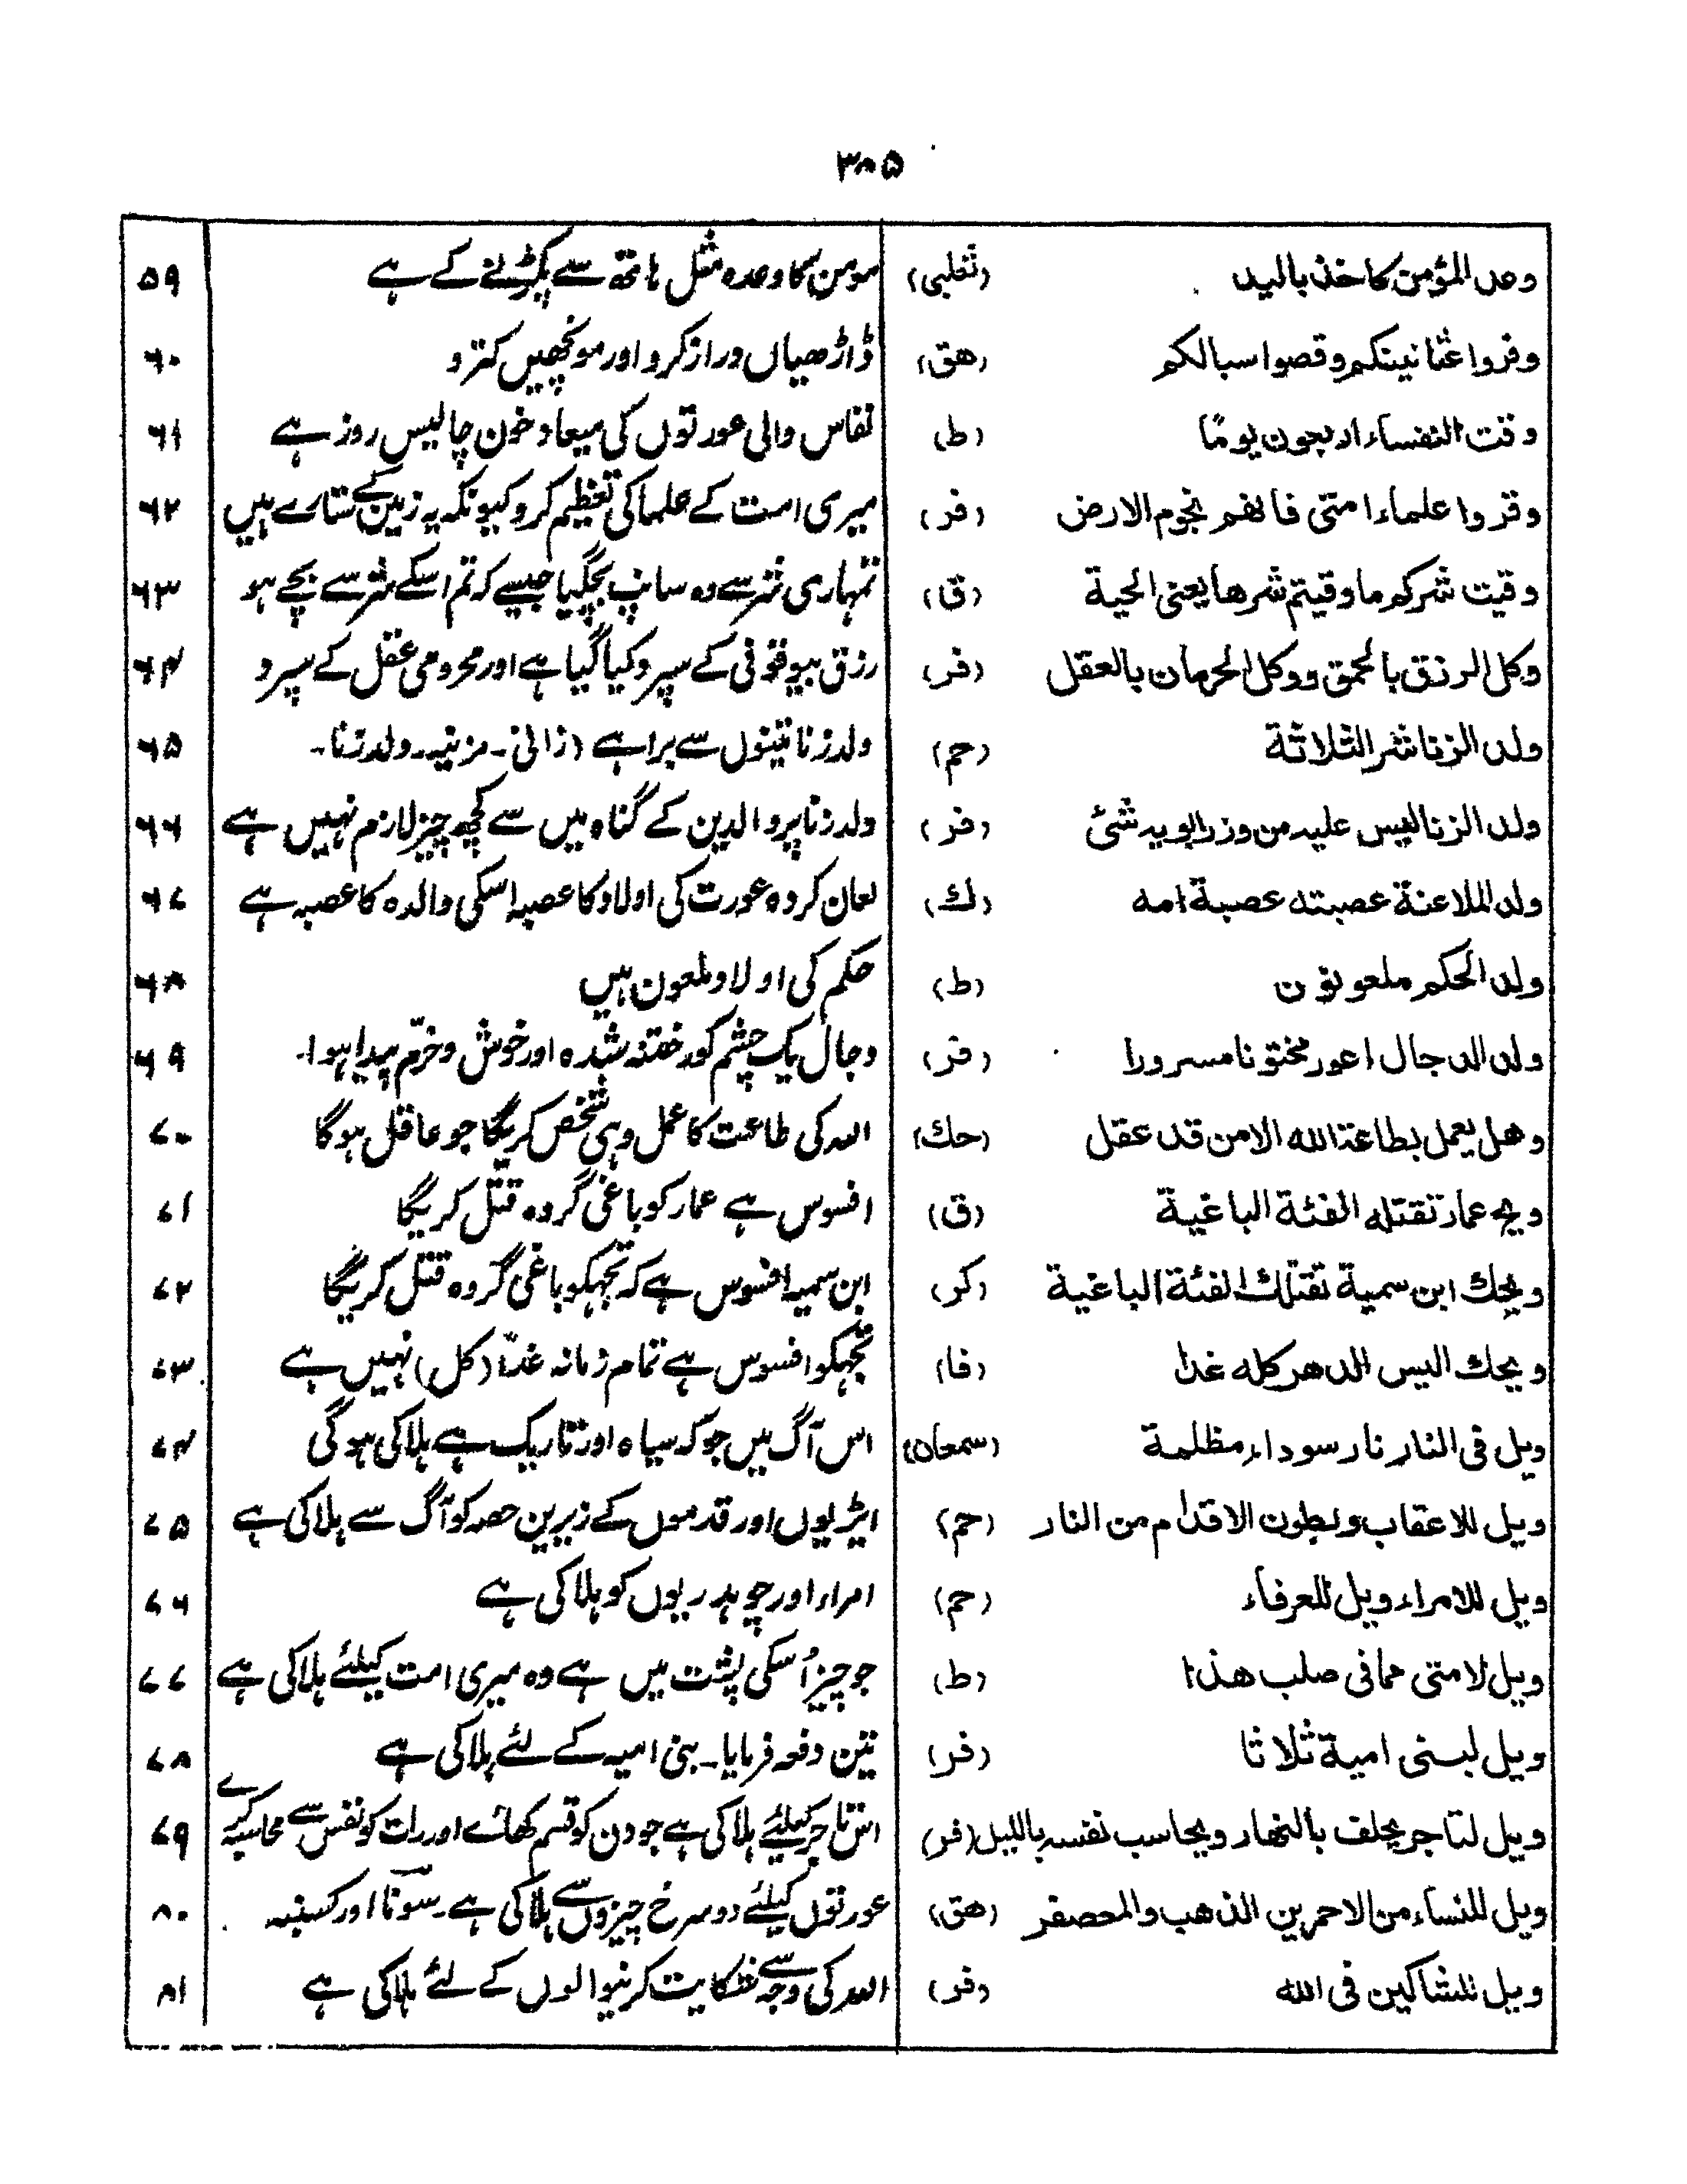 ۳۸۵
وعد المؤمن كاخذ باليد (ثعلبی) مومن کا وعدہ مثل ہاتھ سے پکڑنے کے ہے ۵۹
وفروا عثانينكم وقصوا سبالكم (هق) ڈاڑھیاں دراز کرو اور مونچھیں کترو ۶۰
وقت النفساء اربعون يومًا (ط) نفاس والی عورتوں کی میعاد خون چالیس روز ہے ۶۱
وقروا علماء امتی فانهم نجوم الارض (فر) میری امت کے علما کی تعظیم کرو کیونکہ یہ زمین کے ستارے ہیں ۶۲
وقيت شركم ما وقيتم شرها يعنی الحية (ق) تمہاری شر سے وہ سانپ بچگیا جیسے کہ تم اسکے شر سے بچے ہو ۶۳
وكل الرزق بالحمق ووكل الحرمان بالعقل (فر) رزق بیوقوفی کے سپرد کیا گیا ہے اور محرومی عقل کے سپرد ۶۴
ولد الزنا شر الثلاثة (حم) ولد زنا تینوں سے برا ہے (زانی ۔ مزنیہ ۔ ولد زنا ۔ ۶۵
ولد الزنا ليس عليه من وزر ابويه شئ (فر) ولد زنا پر والدین کے گناہ میں سے کچھ چیز لازم نہیں ہے ۶۶
ولد الملاعنة عصبته عصبة امه (ك) لعان کردہ عورت کی اولاد کا عصبہ اسکی والدہ کا عصبہ ہے ۶۷
ولد الحكم ملعونون (ط) حکم کی اولاد ملعون ہیں ۶۸
ولد الدجال اعور مختونا مسرورا (فر) دجال یک چشم کور ختنہ شدہ اور خوش وخرّم پیدا ہوا ۔ ۶۹
وهل يعمل بطاعة الله الا من قد عقل (حك) اللہ کی طاعت کا عمل وہی شخص کریگا جو عاقل ہوگا ۷۰
ويح عمار تقتله الفئة الباغية (ق) افسوس ہے عمار کو باغی گروہ قتل کریگا ۷۱
ويحك ابن سمية تقتلك الفئة الباغية (كر) ابن سمیہ افسوس ہے کہ تجہکو باغی گروہ قتل کریگا ۷۲
ويحك اليس الدهر كله غدا (فا) تجہکو افسوس ہے تمام زمانہ غدًا (کل) نہیں ہے ۷۳
ويل فی النار نار سوداء مظلمة (سمعان) اس آگ میں جو کہ سیاہ اور تاریک ہے ہلاکی ہوگی ۷۴
ويل للاعقاب وبطون الاقدام من النار (حم) ایڑیوں اور قدموں کے زیرین حصہ کو آگ سے ہلاکی ہے ۷۵
ويل للامراء ويل للعرفاء (حم) امراء اور چوہدریوں کو ہلاکی ہے ۷۶
ويل لامتی مما فی صلب هذا (ط) جو چیز اُسکی پشت میں ہے وہ میری امت کیلئے ہلاکی ہے ۷۷
ويل لبنی امية ثلاثا (فر) تین دفعہ فرمایا ۔ بنی امیہ کے لئے ہلاکی ہے ۷۸
ويل لتاجر يحلف بالنهار ويحاسب نفسه بالليل (فر) اس تاجر کیلئے ہلاکی ہے جو دن کو قسم کھائے اور رات کو نفس سے محاسبہ کرے ۷۹
ويل للنساء من الاحمرين الذهب والمعصفر (هق) عورتوں کیلئے دو سرخ چیزوں سے ہلاکی ہے ۔ سونا اور کسنبہ ۸۰
ويل للشاكين فی الله (فر) اللہ کی وجہ سے شکایت کرنیوالوں کے لئے ہلاکی ہے ۸۱